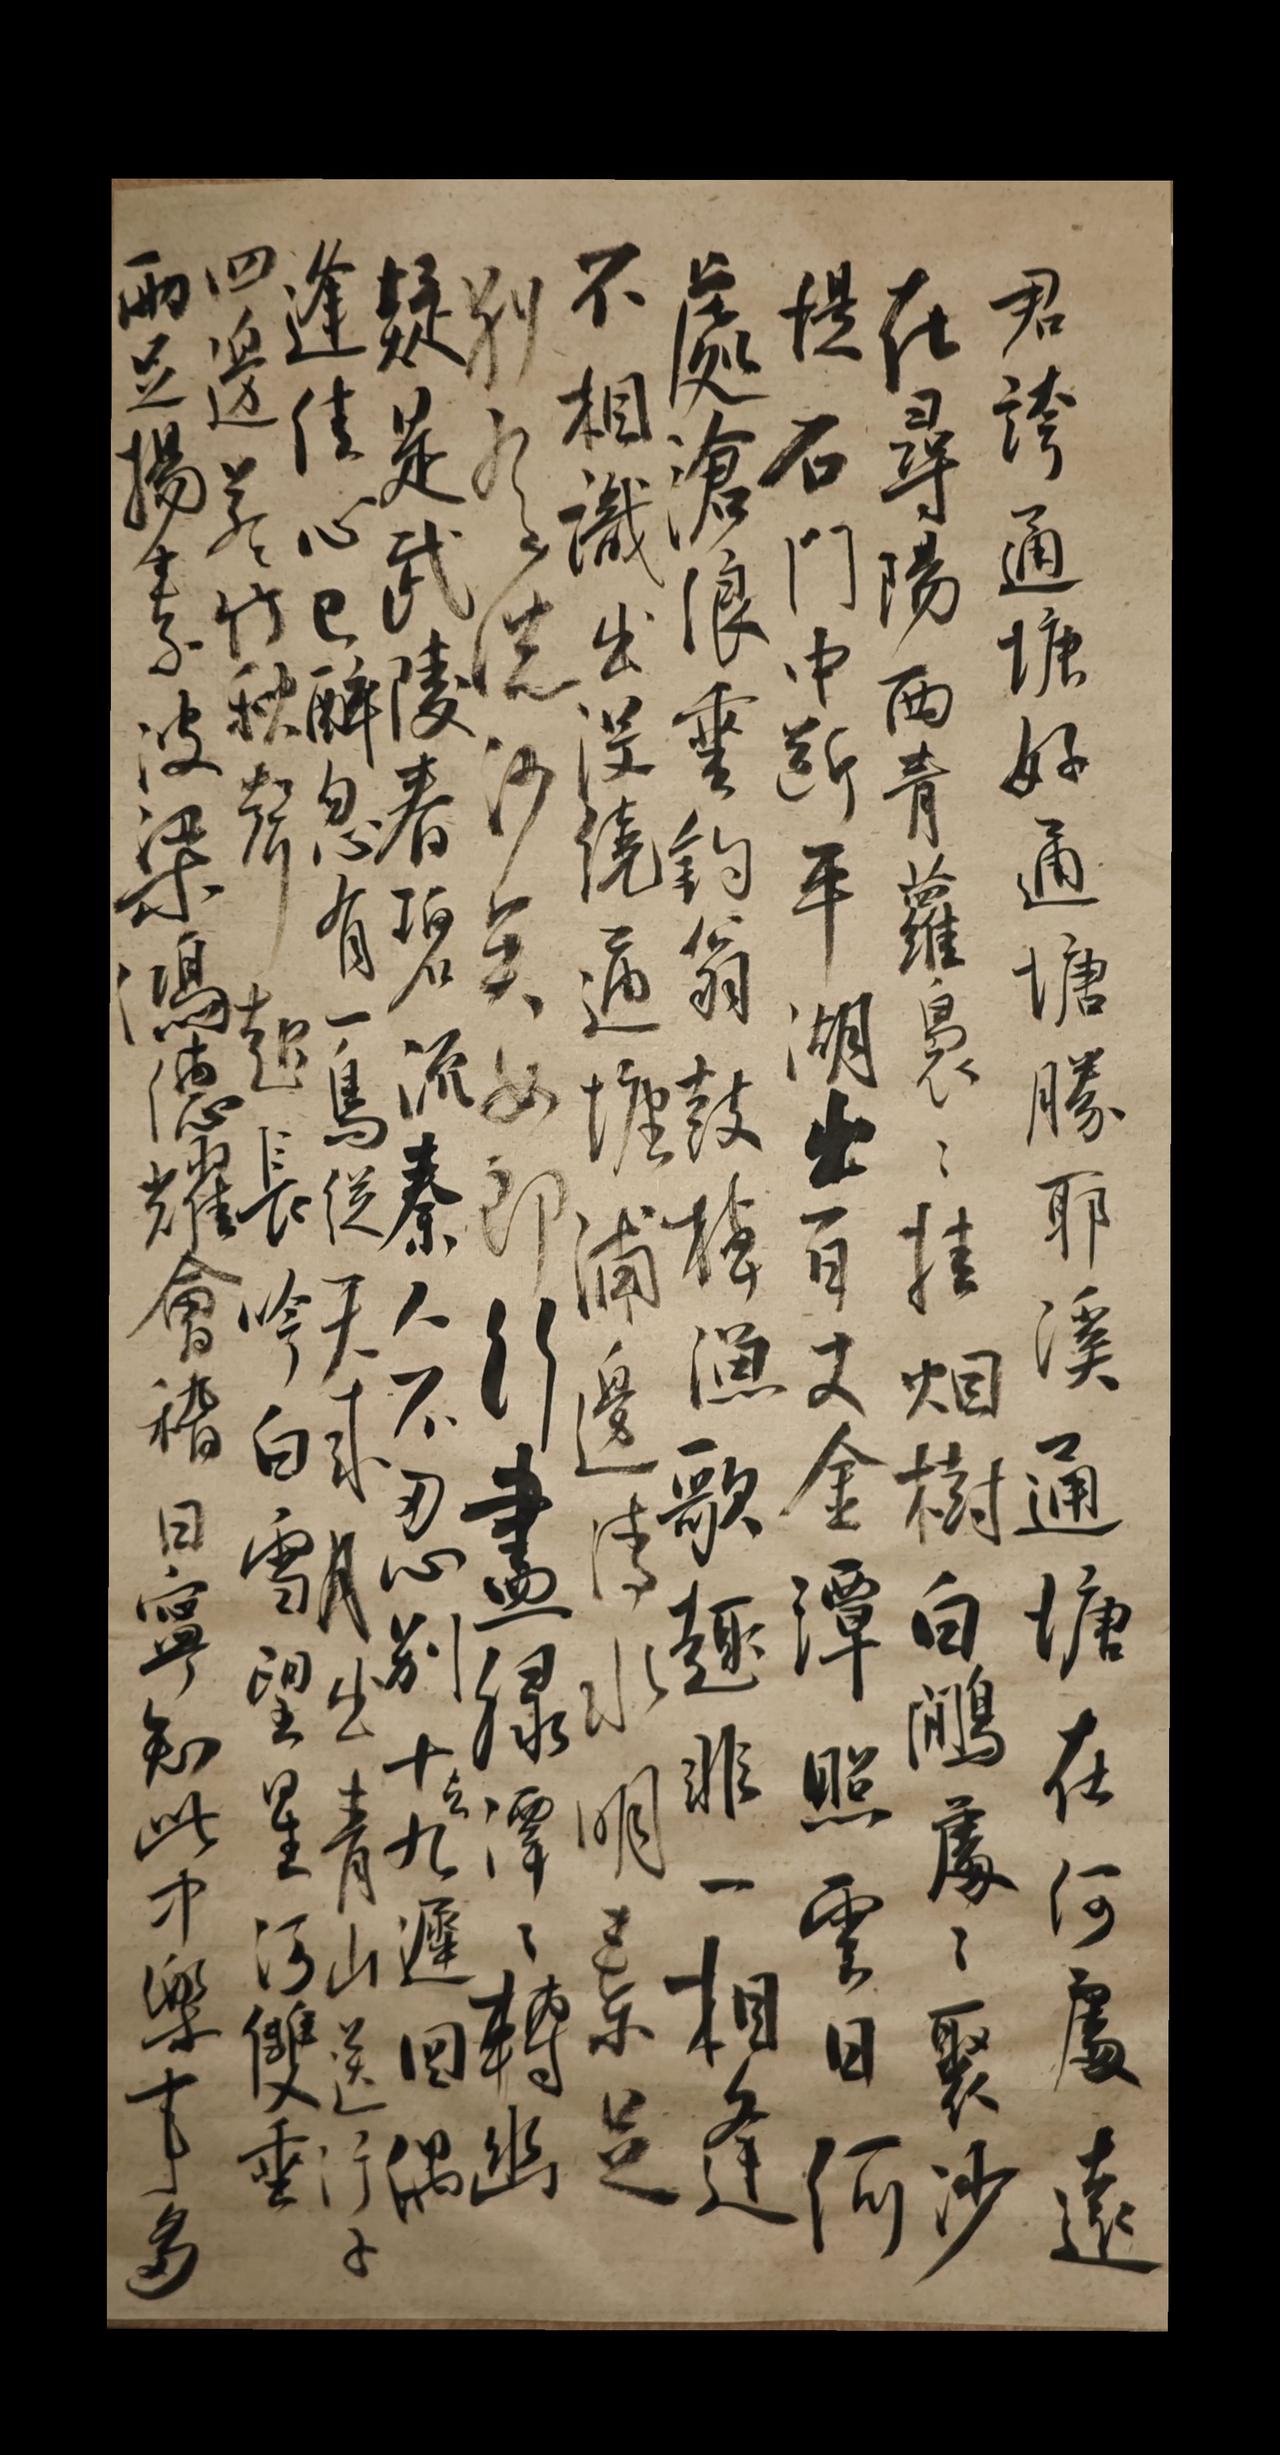 君誇通塘好通塘勝耶溪通塘在何處遠
在尋陽西青蘿裊〻挂烟樹白鷴處〻聚沙
堤石門中斷平湖出百丈金潭照雲日何
處滄浪垂釣翁鼓棹漁歌趣非一相逢
不相識出没繞通塘浦邊清水明素足
別有浣沙吳女郎行盡緑潭〻轉幽
疑是武陵春碧流秦人不忍別十去九遲回偶
逢佳心已醉忽有一鳥從天來月出青山送行子
四邊苦竹秋聲起長吟白雪望星河雙垂
兩足揚素波梁鴻德耀會稽日寧知此中樂事多